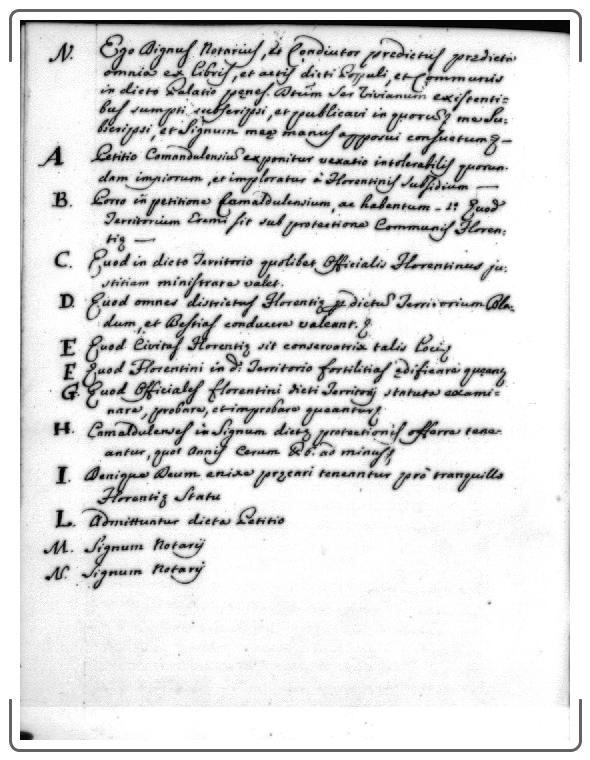 N. Ego Dignus Notarius, et Condiutor predictus prædicta
omnia ex libris, et actis dicti Populi, et Communis
in dicto Palatio penes. Ser Vivianum existenti=
bus sumpti subscripsi, et publicavi in quorum me Su:
bscripsi, et Signum meæ manus apposui consuetum
A Petitio Camandulensium exponitur vexatio intolerabilis quorun=
dam impiorum, et imploratur à Florentinis subsidium —
B. Porro in petitione Camaldulensium, ac habentum - 1º Quod
Territorium Eremi sit sub protectione Communis Floren:
tiæ —
C. Quod in dicto Territorio quolibet Officialis Florentinus ju:
stitiam ministrare valet.
D. Quod omnes districtus Florentiæ p dictum Territorium Bla:
dum, et Bestias conducere valeant.
E Quod Civitas Florentiæ sit conservatrix talis Loci
F Quod Florentini in do. Territorio fortilitias ædificare
G. Quod Officiales florentini dicti Territorij statuta exami=
nare, probare, et improbare queantur
H. Camaldulenses in Signum dictæ protectionis offerre tene=
antur, quot Annis Cerum ad minus
I. Denique Deum enixe præcari teneantur pro tranquillo
Florentiæ Statu
L. Admittuntur dicta Petitio
M. Signum Notarij
N. Signum Notarij